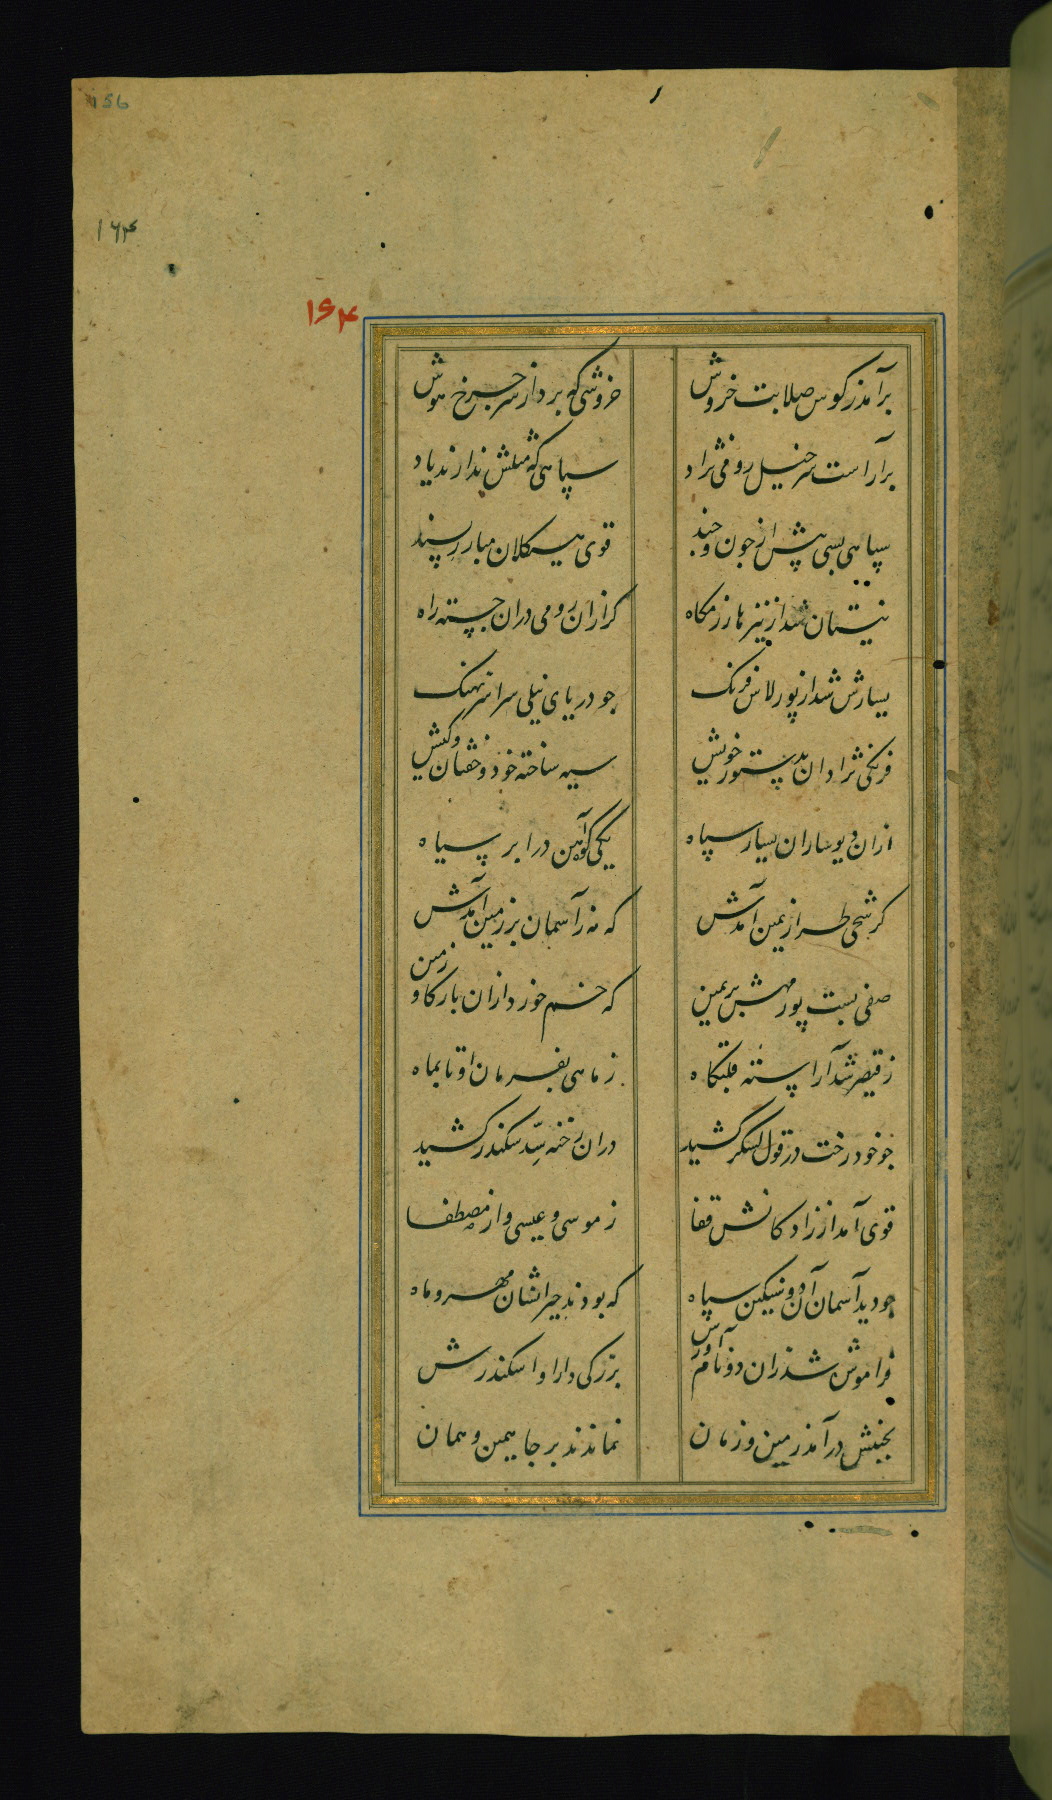 156
۱۶۴
۱۶۴
برآمد ز کوس صلابت خروش خروشی که برد از سر چرخ هوش
برآراست سرخیل رومی نژاد سپاهی که مثلش ندارند یاد
سپاهی بسی پیش از چون و چند قوی هیکلان مبارز پسند
نیستان شد از نیزها رزمکاه کرازان رومی دران جسته راه
یسارش شد از پور لاس فرنک چو دریای نیلی سراسر نهنک
فرنکی نژادان بدستور خویش سیه ساخته خود و خفتان و کیش
ازان دیوساران یسار سپاه یکی کوه آهن در ابر سیاه
کرشحی طراز یمین آمدش که نه آسمان بر زمین آمدش
صفی بست پور مهش بر یمین که خم خورد ازان بار کاو زمین
ز قیصر شد آراسته قلبکاه ز ماهی بفرمان او تا بماه
چو خود رخت در قول لشکر کشید دران رخنه سدّ سکندر کشید
قوی آمد از زادکانش قفا ز موسی و عیسی و از مصطفا
چو دید آسمان آن دو سنکین سپاه که بودند حیرانشان مهر و ماه
فراموش شد زان دو نام آورش بزرکی دارا و اسکندرش
بجنبش درآمد زمین و زمان نماندند بر جا همین و همان